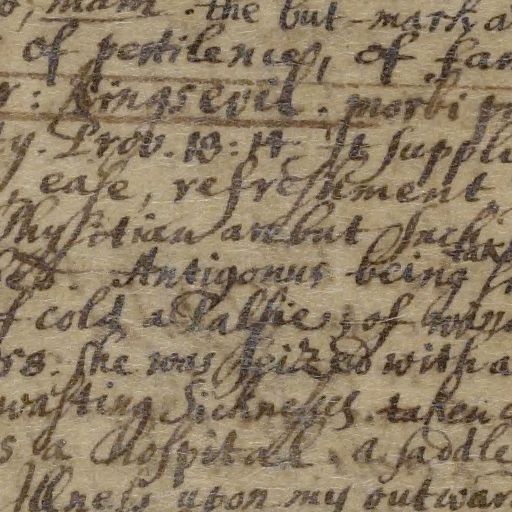 mam. the but-mark, a
of pestilences, of fam
r: kingsevil. morbi
ty. Prov. 18:14. It suppli
ease, refreshment,
Physitian are but such
Antigonus being taken
f cold a Palsie; of wind
rs. She was seized with a
wasting Sicknesses. taken
s a Hospitall, a saddle
Illness upon my outwar